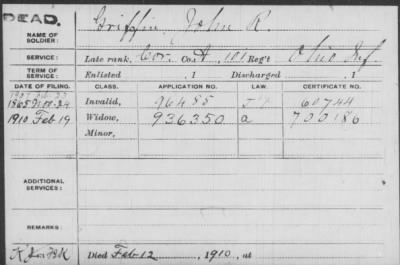 DEAD.
NAME OF SOLDIER: Griffin, John R.
SERVICE: Late rank, Cor. Co. A, 101 Reg't Ohio Inf.
TERM OF SERVICE: Enlisted , 1 Discharged , 1
DATE OF FILING. CLASS. APPLICATION NO. LAW. CERTIFICATE NO.
1865 Nov. 24 Invalid, 96485 60744
1910 Feb 19 Widow, 936350 a 700186
Minor,
ADDITIONAL SERVICES:
REMARKS:
Died Feb 12 , 1910, at